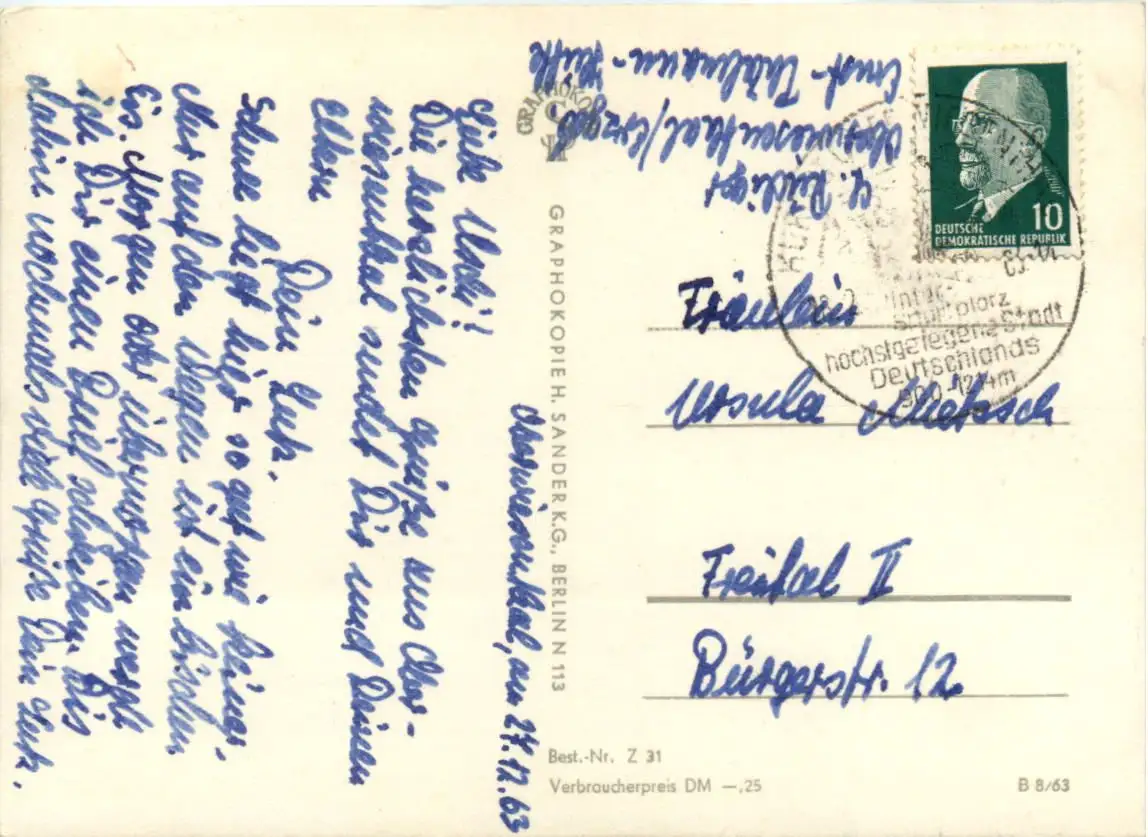 Oberwiesenthal, am 27.12.63
Liebe Uschi!
Die herzlichsten Grüße aus Ober-
wiesenthal sendet Dir und Deinen
Eltern
Dein Lutz.
Schnee liegt hier so gut wie keiner.
Nur auf den Wegen ist ein bischen
Eis. Morgen oder übermorgen werde
ich Dir einen Brief schreiben. Bis
dahin nochmals viele Grüße Dein Lutz.
Oberwiesenthal/Erzgeb
Ernst-Thälmann-
GRAPHOKOPIE H. SANDER K.G., BERLIN N 113
10
DEUTSCHE
DEMOKRATISCHE REPUBLIK
höchstgelegene Stadt
Deutschlands
900-1214m
Fräulein
Ursula
Freital II
Bürgerstr. 12
Best.-Nr. Z 31
Verbraucherpreis DM —,25
B 8/63